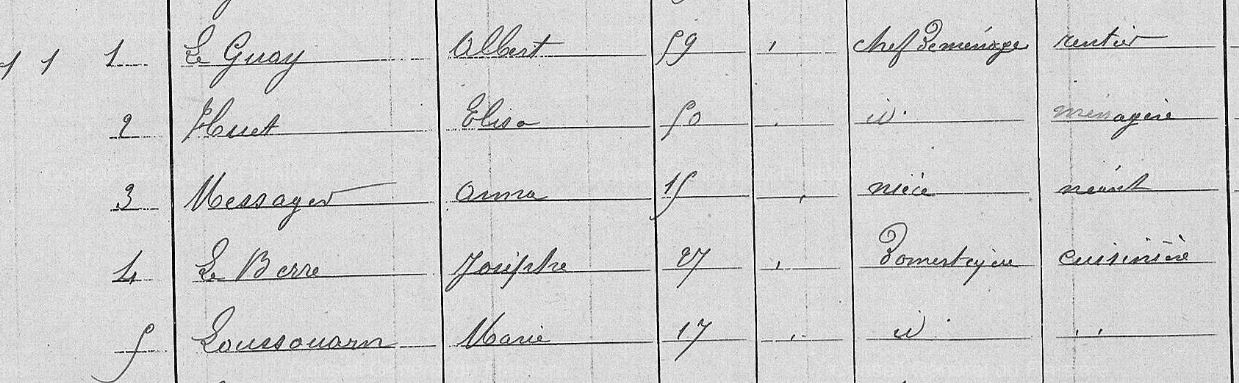 1 1 1 Le Guay Albert 59 , chef de ménage rentier
2 Huet Elisa 50 . id. ménagère
3 Messager Anna 15 , nièce néant
4 Le Berre Josèphe 27 , Domestique cuisinière
5 Loussouarn Marie 17 , id ,,